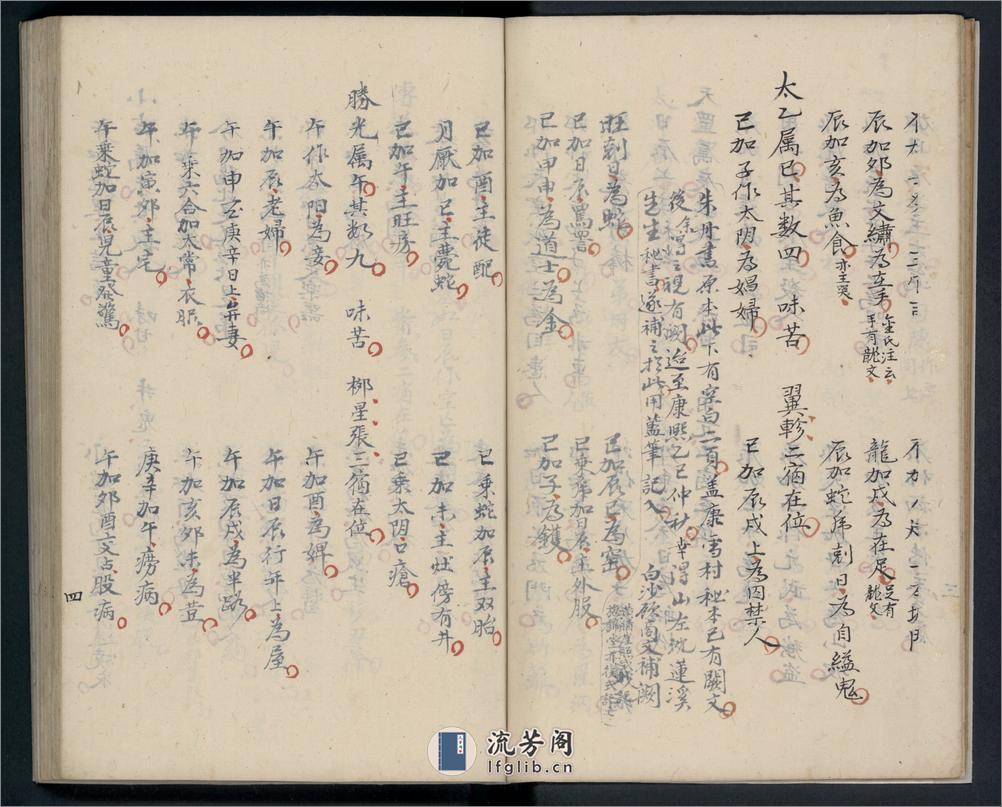 辰加夘為文繡為左手 金氏注云手有龍文
龍加戌為在足 足有龍文
辰加亥為魚食 亦主哭
辰加蛇刑日為自縊鬼
太乙属巳其数四 味苦 翼軫二宿在位
巳加子作太阴為娼婦
巳加辰戌上為囚禁人
朱丹書原本此下有空白二頁蓋康雪村秘本已有闕文
後余寫之視有闕迨至康熙乙巳仲秋幸得山左地蓮溪
先生秘書遂補之於此用蓋筆記入 白沙欽南文補闕
旺刻日為蛇
巳加辰巳為窑
巳加日辰罵詈
巳乗常加日辰主外服
巳加申申為道士為金
巳加子為鑊
巳加酉主徒配
巳乗蛇加辰主双胎
月厭加巳主甍蛇
巳加未主灶傍有井
巳加午主旺房
巳乗太阴口瘡
勝光属午其数九 味苦 栁星張三宿在位
午作太阳為妾
午加酉為婢
午加辰老婦
午加日辰行年上為屋
午加申至庚辛日上弃妻
午加辰戌為半路
午乗六合加太常衣服
午加亥夘未為荳
午加寅夘主宅
庚辛加午痨病
午乗蛇加日辰児童發驚
午加夘酉交占股病
四
三
流芳阁
lfglib.cn